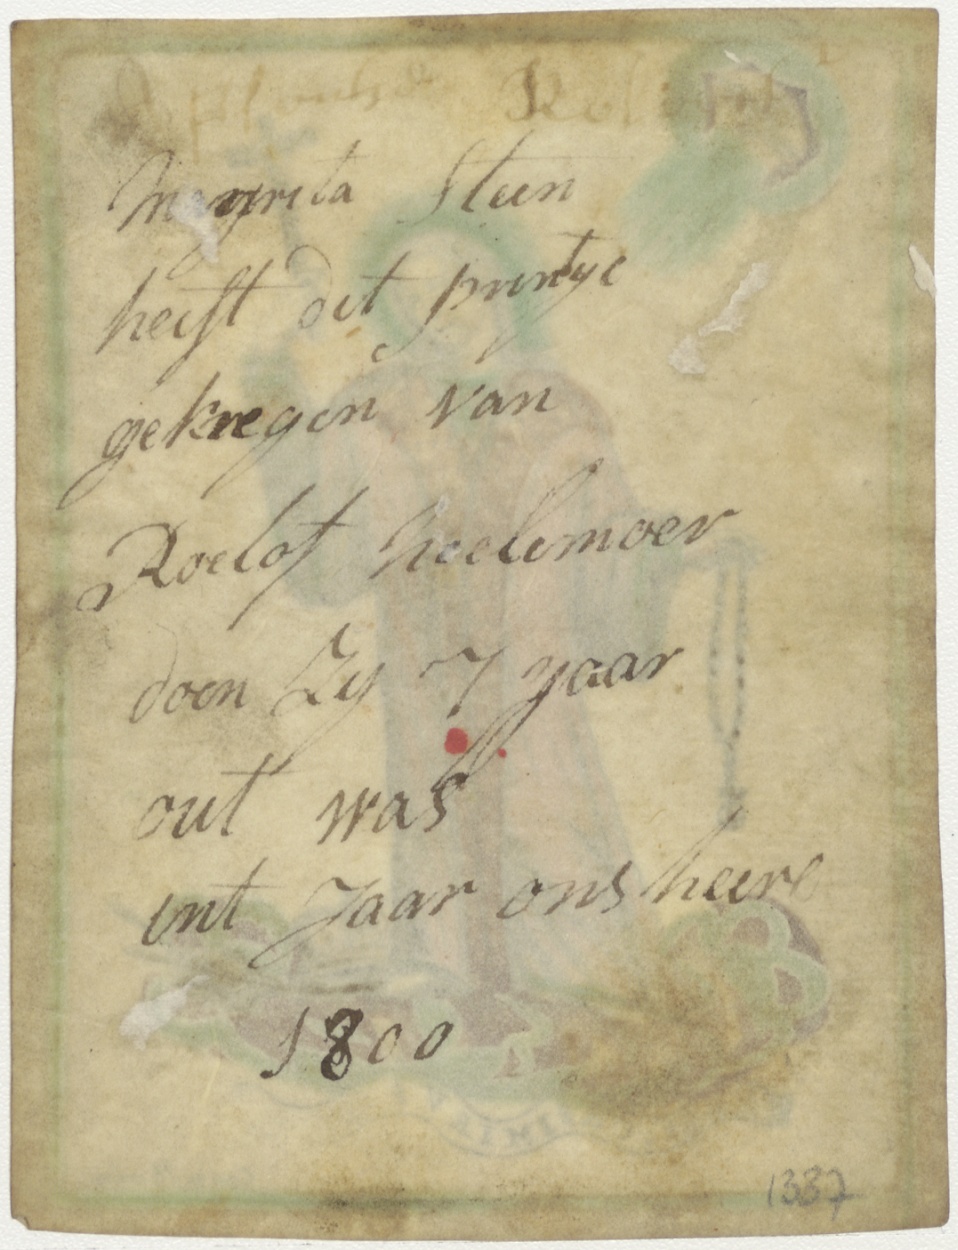 Margrita Steen
heeft dit printye
gekregen van
Roelof heelemoer
doen Zy 7 yaar
out was
int Jaar ons heere
1800
1387